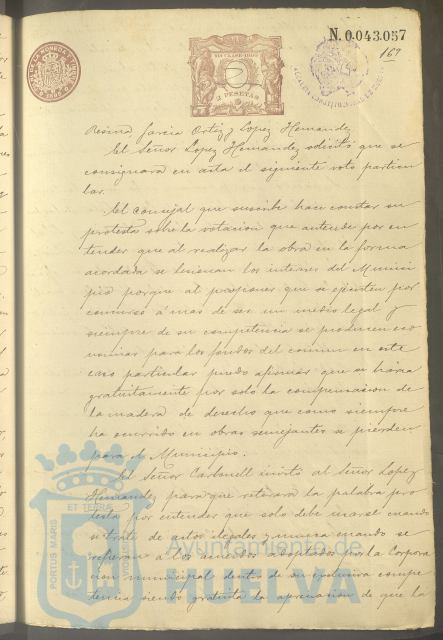 N. 0.043.057
169
2 PESETAS
Resina, Garcia Ortiz y Lopez Hernandez
El Señor Lopez Hernandez solicitó que se
consignara en acta el siguiente voto particu
lar.
El concejal que suscribe hace constar su
protesta sobre la votacion que antecede por en
tender que al realizar la obra en la forma
acordada se lesionan los intereses del Munici
pio porque al proponer que se ejecuten por
concurso á mas de ser un medio legal y
siempre de su competencia se producen eco
nomias para los fondos del comun en este
caso particular puedo afirmar que se haria
gratuitamente por solo la compensacion de
la madera de desecho que como siempre
ha ocurrido en obras semejantes se pierden
para el Municipio.
El Señor Carbonell invitó al Señor Lopez
Hernandez para que retirara la palabra pro
testa por entender que solo debe usarse cuando
se trate de actos ilegales y nunca cuando se
refieran á los acuerdos adoptados por la Corpora
cion municipal dentro de su esclusiva compe
tencia siendo gratuita la apreciacion de que la
PORTUS MARIS
ET TERRÆ
Ayuntamiento de
HUELVA